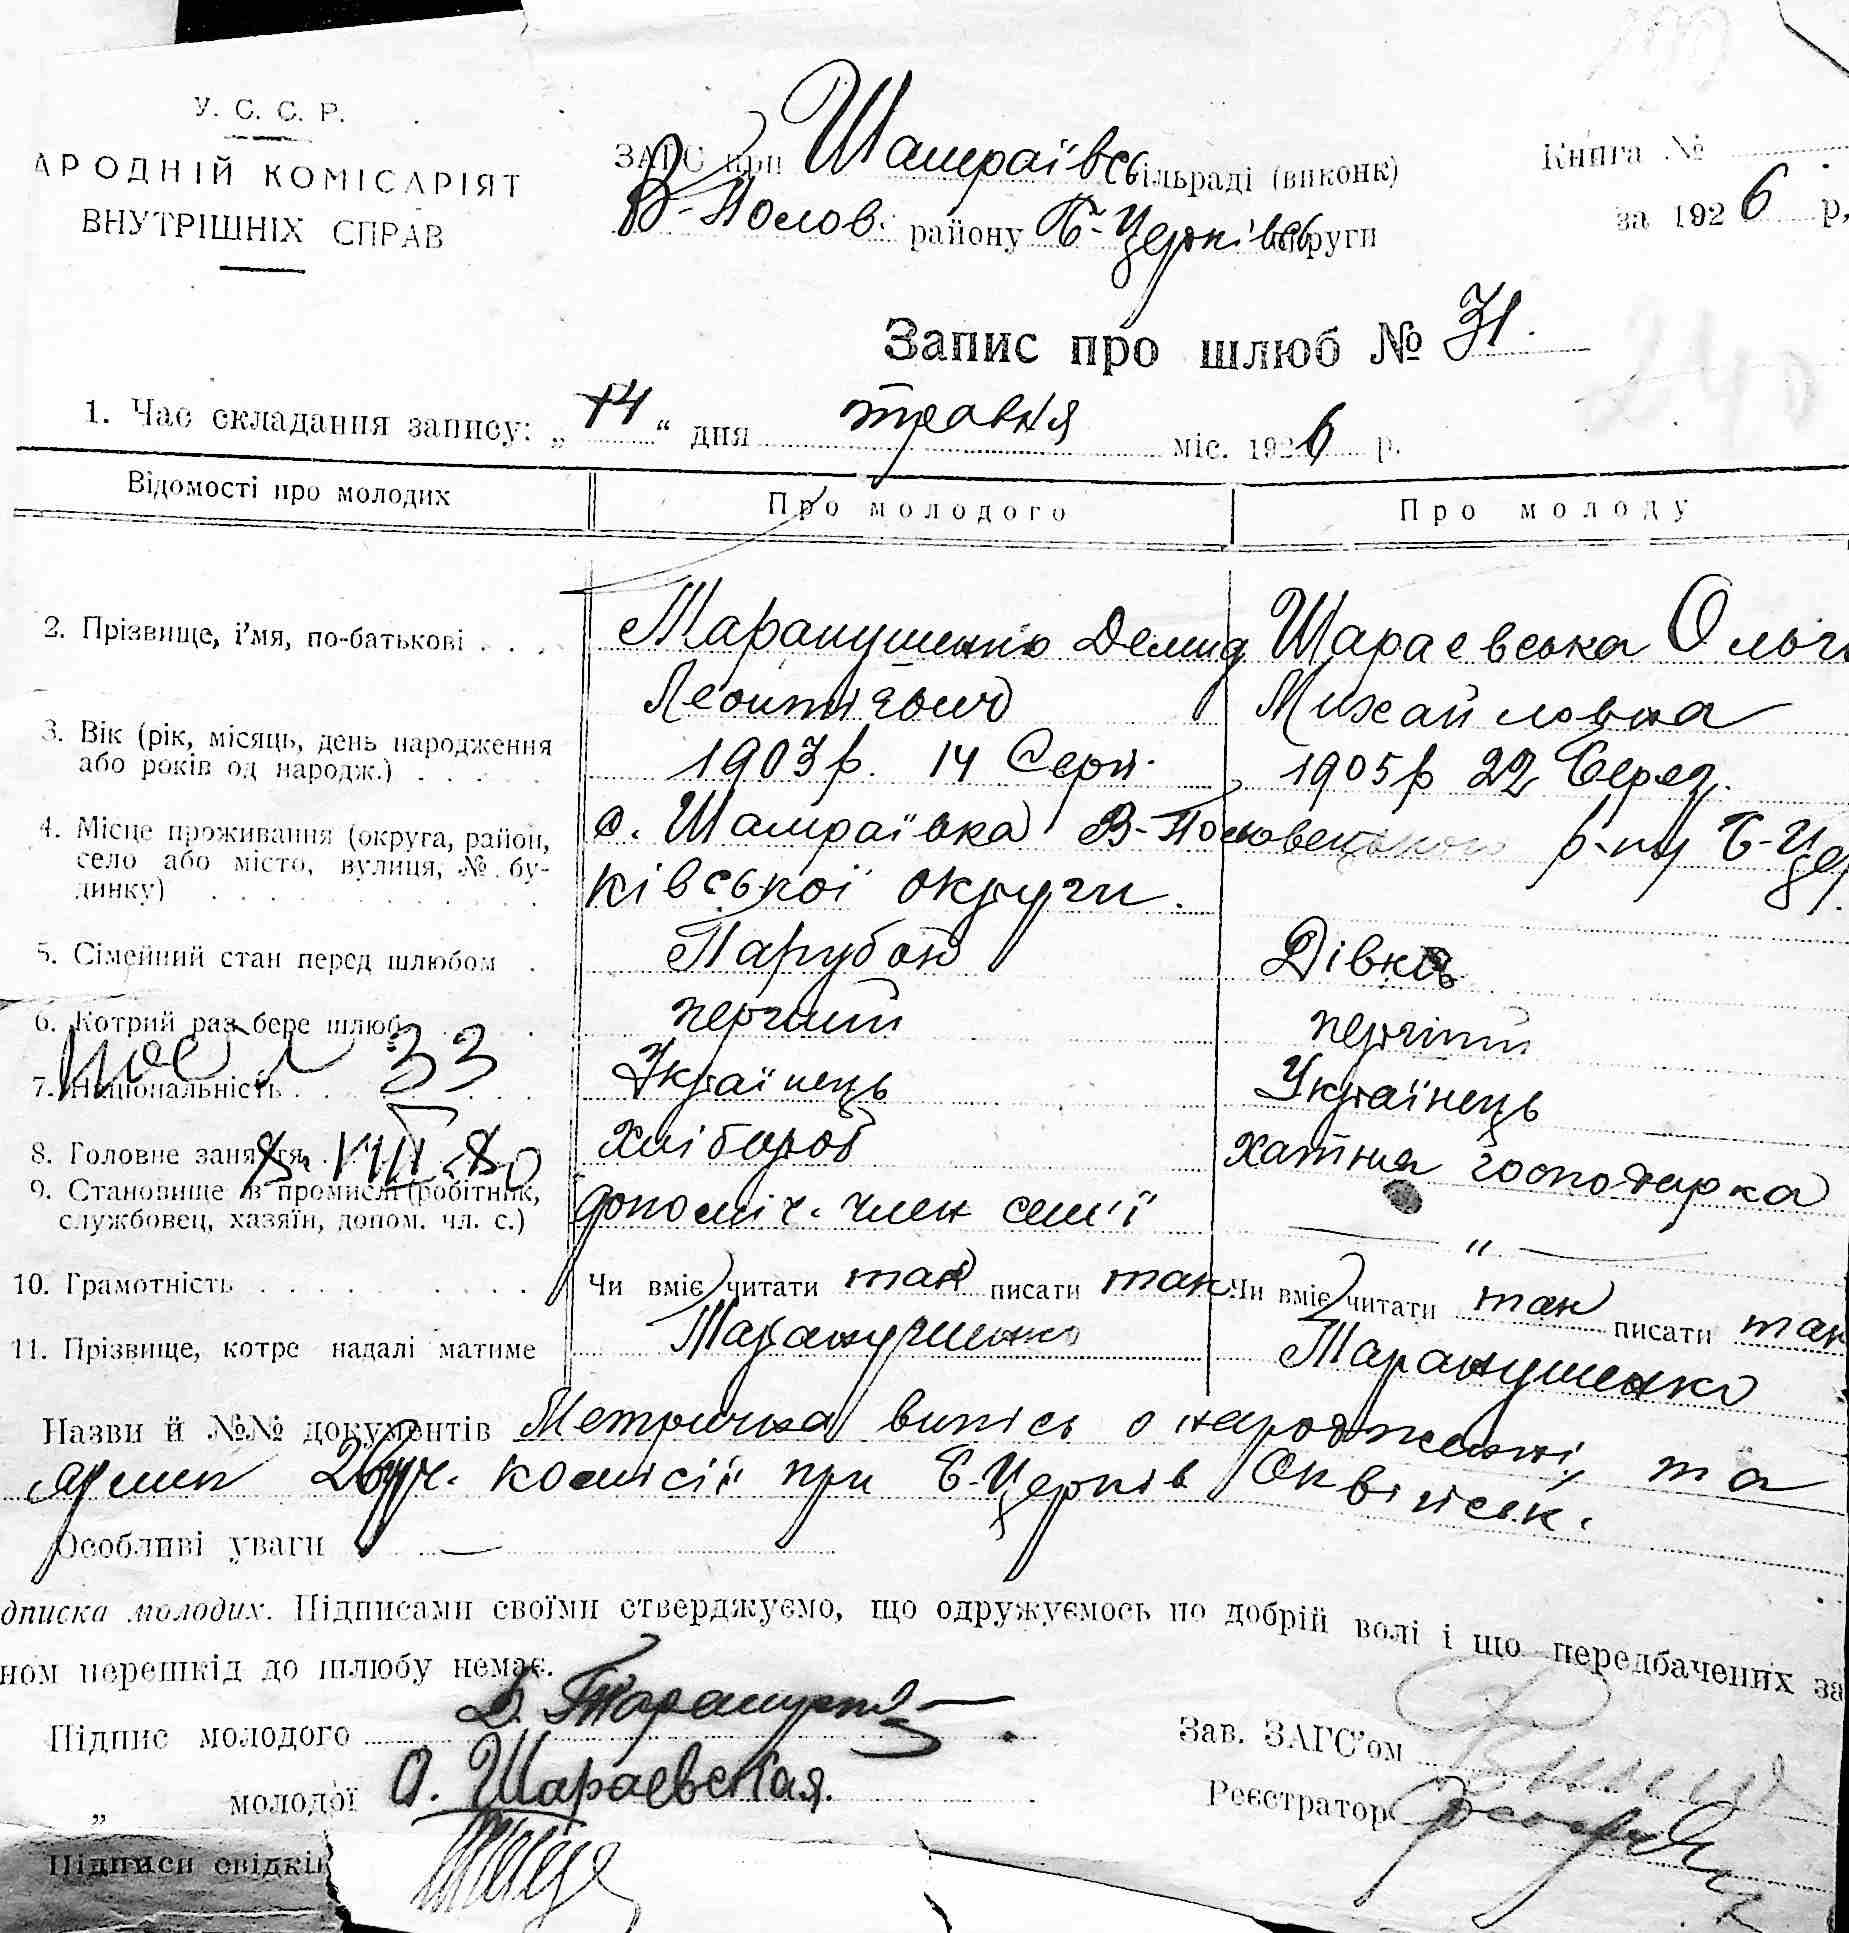 У. С. С. Р.
АРОДНІЙ КОМІСАРІЯТ
ВНУТРІШНІХ СПРАВ
ЗАГС при Шамраївс сільраді (виконк)
В-Полов. району Б-Церківс округи
Книга №
за 1926 р,
Запис про шлюб № 31.
240
1. Час складання запису: „14“ дня травня міс. 1926 р.
Відомості про молодих
Про молодого
Про молоду
2. Прізвище, і'мя, по-батькові
Таранушенко Демид
Леонтієвич
Шараєвська Ольг
Михайловна
3. Вік (рік, місяць, день народження
або років од народж.)
1903 р. 14 Серп.
1905 р 22 Берез.
4. Місце проживання (округа, район,
село або місто, вулиця, № бу-
динку)
с. Шамраївка В-Половецького р-ну Б-Цер
ківської округи.
5. Сімейний стан перед шлюбом
Парубок
Дівка
6. Котрий раз бере шлюб
перший
перший
33
7. Національність
Українець
Українець
8. Головне заняття
8. VIII 80
Хлібороб
хатня господарка
9. Становище в промислі (робітник,
службовец, хазяїн, допом. чл. с.)
допоміч. член сем'ї
"
10. Грамотність
Чи вміє читати так писати так
Чи вміє читати так писати так
11. Прізвище, котре надалі матиме
Таранушенко
Таранушенко
Назви й №№ документів Метрична випісь о народженні, та
комісії при Б-Церків Окрвійськ.
Особливі уваги —
дписка молодих. Підписами своїми стверджуємо, що одружуємось по добрій волі і що передбачених за
ном перешкід до шлюбу немає.
Підпис молодого Д. Таранушенко
„ молодої О. Шараевская.
Зав. ЗАГС'ом
Реєстратор
Підписи свідків